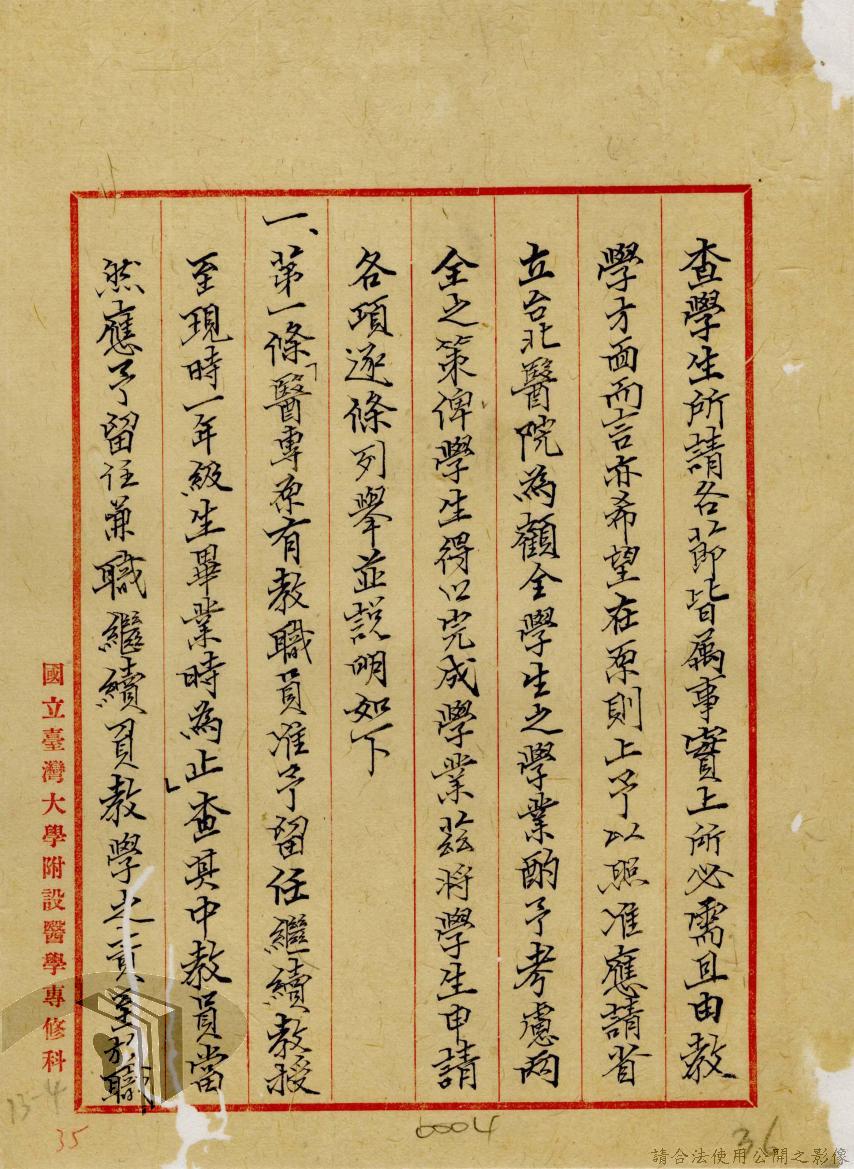 查學生所請各節皆屬事實上所必需且由教
學方面而言亦希望在原則上予以照准應請省
立台北醫院為顧全學生之學業酌予考慮兩
全之策俾學生得以完成學業茲將學生申請
各項逐條列舉並說明如下
一、第一條「醫專原有教職員准予留任繼續教授
至現時一年級生畢業時為止」查其中教員當
然應予留任兼職繼續負教學之責至於職
國立臺灣大學附設醫學專修科
13-4
35
0004
36
請合法使用公開之影像